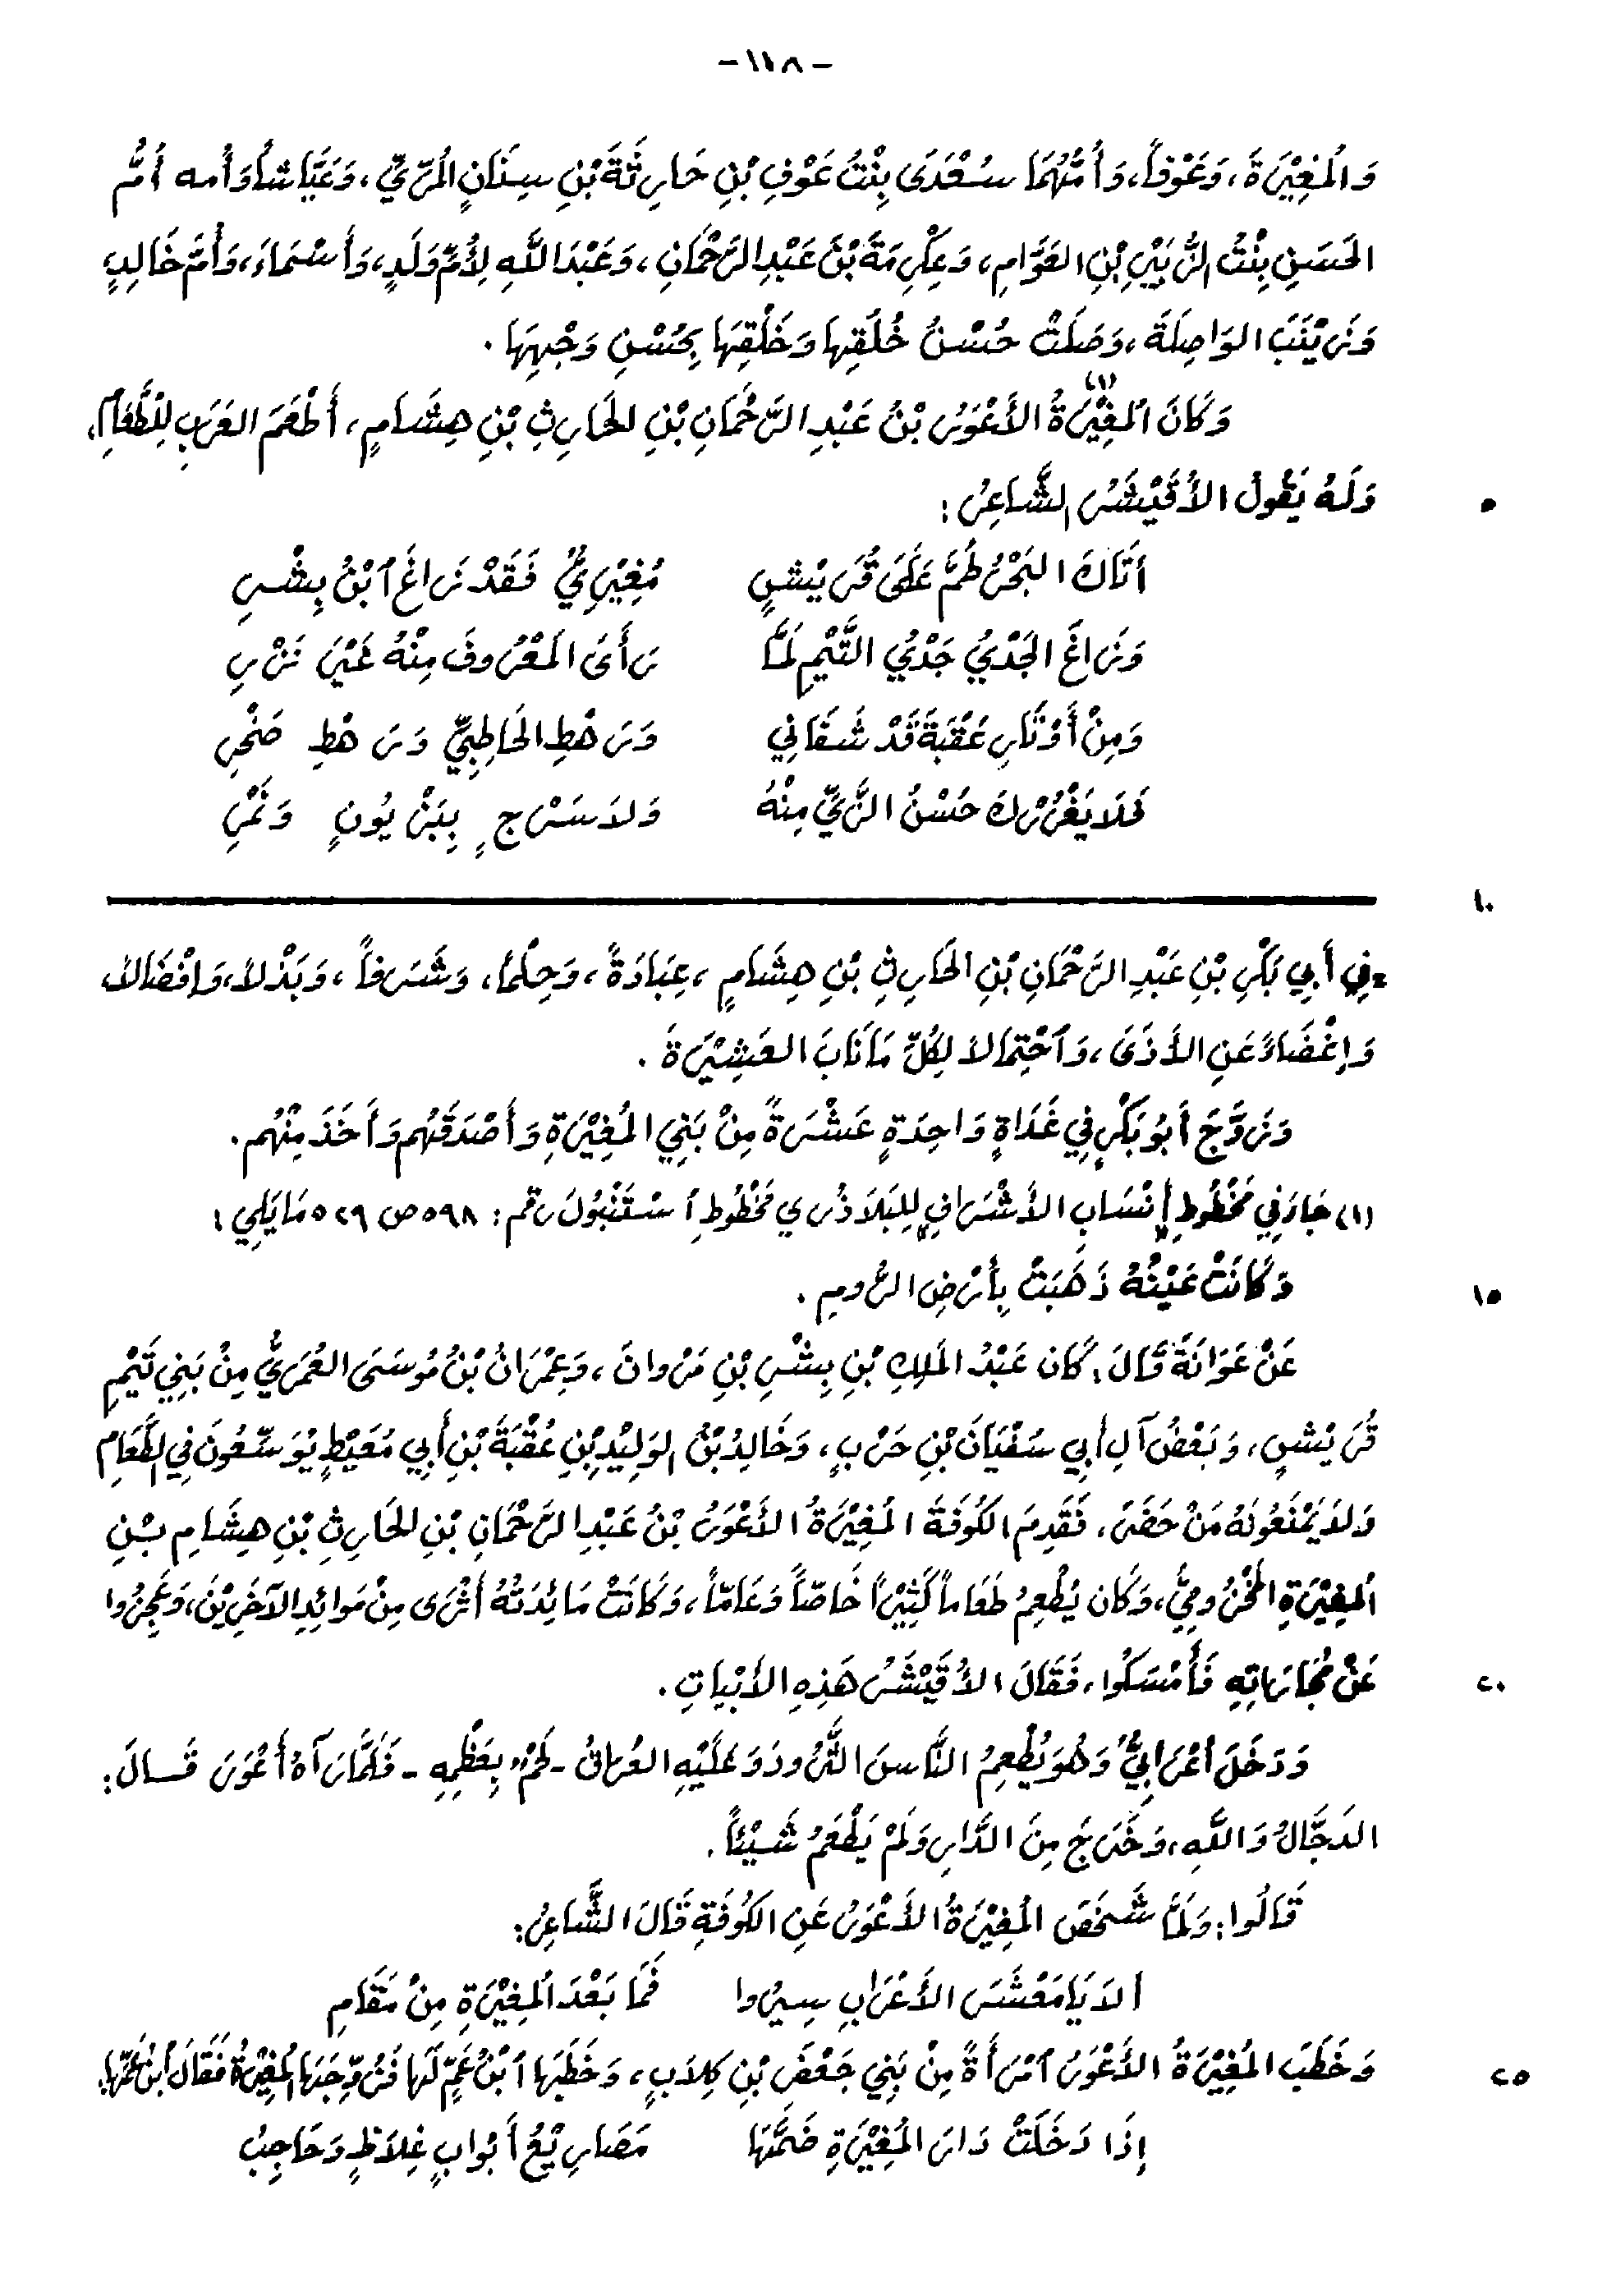 -١١٨-
وَالْمُغِيْرَةَ، وَعَوْفاً، وَأُمُّهُمَا سُعْدَى بِنْتُ عَوْفِ بْنِ خَارِثَةَ بْنِ سِنَانٍ الْمُرِّيِّ، وَعَيَّاشاً وَأُمه أُمُّ
الحَسَنِ بِنْتُ الزُّبَيْرِ بْنِ العَوَّامِ، وَعِكْرِمَةَ بْنَ عَبْدِ الرَّحْمَانِ، وَعَبْدَ اللَّهِ لِأُمِّ وَلَدٍ، وَأَسْمَاءَ، وَأُمَّ خَالِدٍ،
وَزَيْنَبَ الوَاصِلَةَ، وَصَلَتْ حُسْنَ خُلُقِهَا وَخَلْقِهَا بِحُسْنِ وَجْهِهَا .
وَكَانَ الْمُغِيْرَةُ(١) الأَعْوَرُ بْنُ عَبْدِ الرَّحْمَانِ بْنِ الحَارِثِ بْنِ هِشَامٍ، أَطْعَمَ العَرَبِ لِلطَّعَامِ،
٥ وَلَهُ يَقُولُ الأُقَيْشَرُ الشَّاعِرُ :
أَتَاكَ البَحْرُ طَمَّ عَلَى قُرَيْشٍ مُغِيْرِيٌّ فَقَدْ زَاغَ ٱبْنُ بِشْرِ
وَزَاغَ الجَدْيُ جَدْيُ التَّيْمِ لَمَّا رَأَى المَعْرُوفَ مِنْهُ غَيْرَ نَزْرِ
وَمِنْ أَوْتَارِ عُقْبَةَ قَدْ شَفَانِي وَرَهْطِ الحَاطِبِيِّ وَرَهْطِ صَخْرِ
فَلَا يَغْرُرْكَ حُسْنُ الزِّيِّ مِنْهُ وَلاَ سَرْجٍ بِبَزْيُونٍ وَنَمْرِ
١٠
=فِي أَبِي بَكْرِ بْنِ عَبْدِ الرَّحْمَانِ بْنِ الحَارِثِ بْنِ هِشَامٍ، عِبَادَةً، وَحِلْماً، وَشَرَفاً، وَبَذْلاً، وَإفْضَالاً،
وَإغْضَاءً عَنِ الأَذَى، وَٱحْتِمالاً لِكُلِّ مَا نَابَ العَشِيْرَةَ .
وَزَوَّجَ أَبُو بَكْرٍ فِي غَدَاةٍ وَاحِدَةٍ عَشْرَةً مِنْ بَنِي المُغِيْرَةِ وَأَصْدَقَهُم وَأَخَذَ مِنْهُم.
(١) جَاءَ فِي مَخْطُوطِ أَنْسَابِ الأَشْرَافِ لِلبَلاَذُرِي مَخْطُوطِ ٱسْتَنْبُولَ رقم: ٥٩٨ ص ٥٢٩ مَا يَلِي :
١٥ وَكَانَتْ عَيْنُهُ ذَهَبَتْ بِأَرْضِ الرُّومِ .
عَنْ عَوَانَةَ قَالَ: كَانَ عَبْدُ المَلِكِ بْنِ بِشْرِ بْنِ مَرْوانَ، وَعِمْرَانُ بْنُ مُوسَى العُمَرِيُّ مِنْ بَنِي تَيْمِ
قُرَيْشٍ، وَبَعْضُ آلِ أَبِي سُفْيَانَ بْنِ حَرْبٍ، وَخَالِدُ بْنُ الوَلِيْدِ بْنِ عُقْبَةَ بْنِ أَبِي مُعَيْطٍ يُوَسِّعُونَ فِي الطَّعَامِ
وَلاَ يَمْنَعُونَهُ مَنْ حَضَرَ، فَقَدِمَ الكُوفَةَ المُغِيْرَةُ الأَعْوَرُ بْنُ عَبْدِ الرَّحْمَانِ بْنِ الحَارِثِ بْنِ هِشَامِ بْنِ
المُغِيْرَةِ المَخْزُومِيُّ، وَكَانَ يُطْعِمُ طَعَاماً كَثِيْراً خَاصّاً وَعَامّاً، وَكَانَتْ مَائِدَتُهُ أَثْرَى مِنْ مَوائِدِ الآخَرِيْنَ، وَعَجِزُوا
٢٠ عَنْ مُجَارَاتِهِ فَأَمْسَكُوا، فَقَالَ الأُقَيْشَرُ هَذِهِ الأَبْيَاتِ .
وَدَخَلَ أَعْرَابِيٌّ وَهُوَ يُطْعِمُ النَّاسَ الثَّرُودَ وَعَلَيْهِ العُرَاقُ - لَحْمٌ بِعَظْمِهِ - فَلَمَّا رَآهُ أَعْوَرَ قَالَ:
الدَجَّالُ وَاللَّهِ، وَخَرَجَ مِنَ الدَّارِ وَلَمْ يَطْعَمْ شَيْئاً .
قَالُوا: وَلَمَّا شَخَصَ المُغِيْرَةُ الأَعْوَرُ عَنِ الكُوفَةِ قَالَ الشَّاعِرُ:
أَلاَ يَا مَعْشَرَ الأَعْرَابِ سِيرُوا فَمَا بَعْدَ المُغِيْرَةِ مِنْ مَقَامِ
٢٥ وَخَطَبَ المُغِيْرَةُ الأَعْوَرُ ٱمْرَأَةً مِنْ بَنِي جَعْفَرِ بْنِ كِلاَبٍ، وَخَطَبَهَا ٱبْنُ عَمٍّ لَهَا فَزُوِّجَهَا المُغِيْرَةُ فَقَالَ ٱبْنُ عَمِّهَا:
إِذَا دَخَلَتْ دَارَ المُغِيْرَةِ ضَمَّهَا مَصَارِيْعُ أَبْوابٍ غِلاَظٍ وَحَاجِبُ